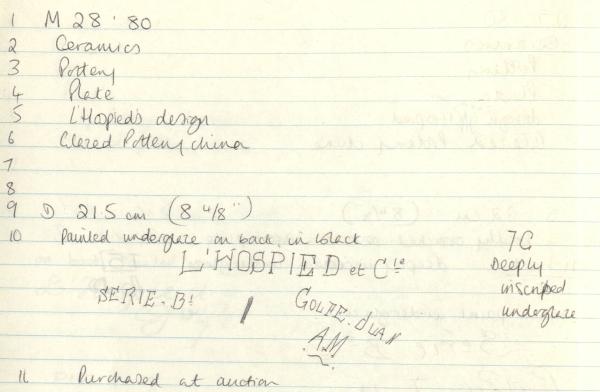 1 M 28 · 80
2 Ceramics
3 Pottery
4 Plate
5 L'Hospied's design
6 Glazed Pottery china
7
8
9 D 21.5 cm (8 4/8")
10 Painted underglaze on back, in black
L'HOSPIED et Cie
SERIE. B!
GOLFE. JUAN
A.M
7C
Deeply
inscribed
underglaze
11 Purchased at auction